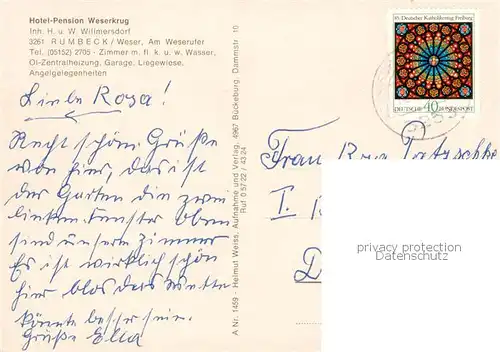 Hotel-Pension Weserkrug
Inh. H. u. W. Willmersdorf
3261 RUMBECK / Weser, Am Weserufer
Tel. (05152) 2705 - Zimmer m. fl. k. u. w. Wasser,
Öl-Zentralheizung, Garage, Liegewiese,
Angelgelegenheiten
Liebe Rosa!
Recht schöne Grüße
von hier, das ist
der Garten die zwei
linken Fenster oben
sind unsere Zimmer
Es ist wirklich schön
hier blos das Wetter
könnte besser sein.
Grüße Ella
A Nr. 1459 - Helmut Weiss, Aufnahme und Verlag, 4967 Bückeburg, Dammstr. 10
Ruf 0 57 22 / 43 24
85. Deutscher Katholikentag Freiburg
DEUTSCHE BUNDESPOST
40
Frau Rosa Tatzschke
I.
D
privacy protection